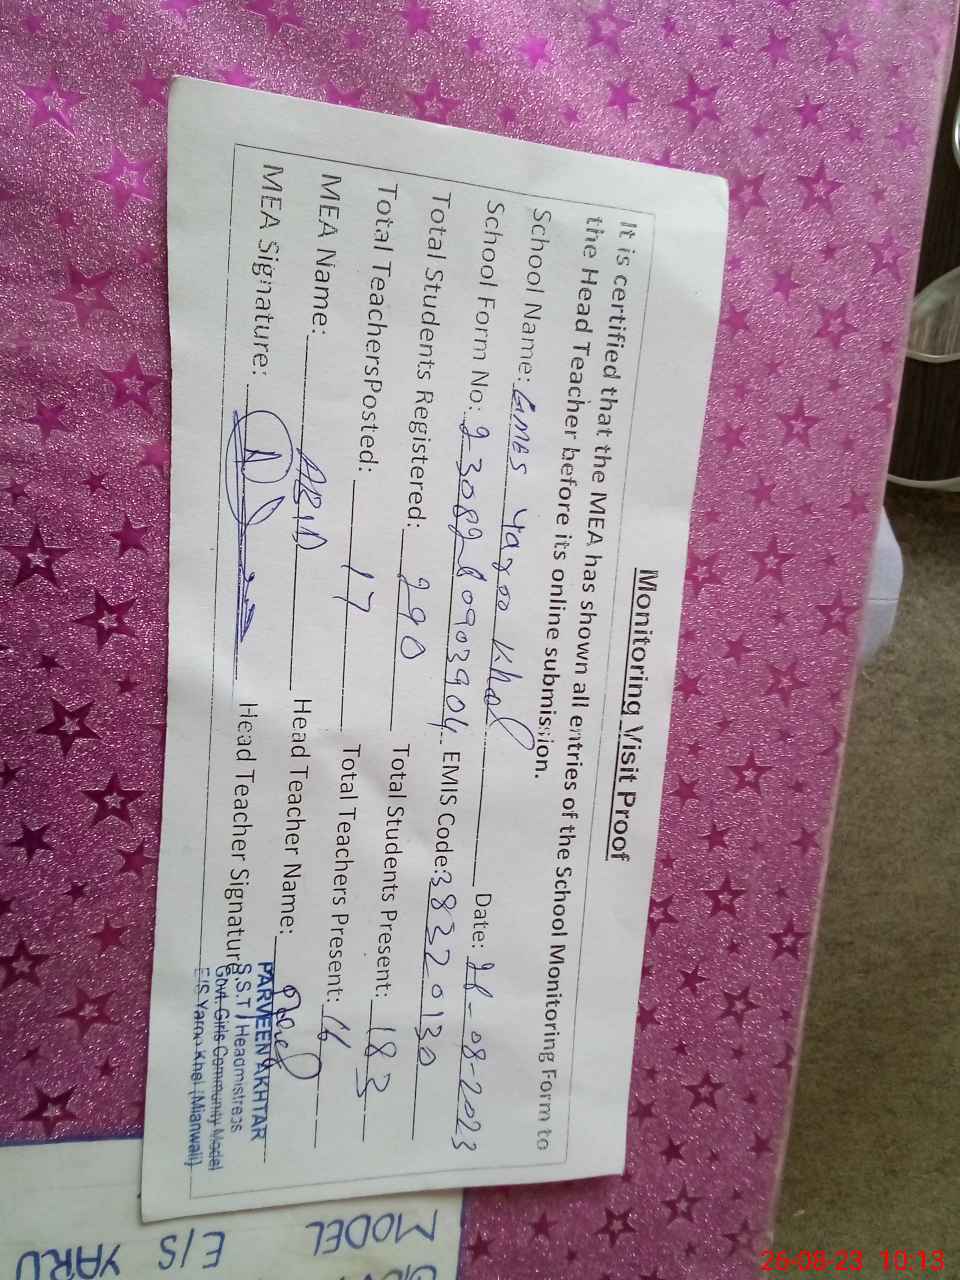 Monitoring Visit Proof
It is certified that the MEA has shown all entries of the School Monitoring Form to
the Head Teacher before its online submission.
School Name: GMES Yaroo Khel Date: 26-08-2023
School Form No: 2308260903904 EMIS Code: 383220130
Total Students Registered: 290 Total Students Present: 183
Total TeachersPosted: 17 Total Teachers Present: 16
MEA Name: ABID Head Teacher Name:
MEA Signature: Head Teacher Signature
PARVEEN AKHTAR
S.S.T / Headmistress
Govt. Girls Community Model
E/S Yaroo Khel (Mianwali)
MODEL
E/S YARU
26-08-23 10:13